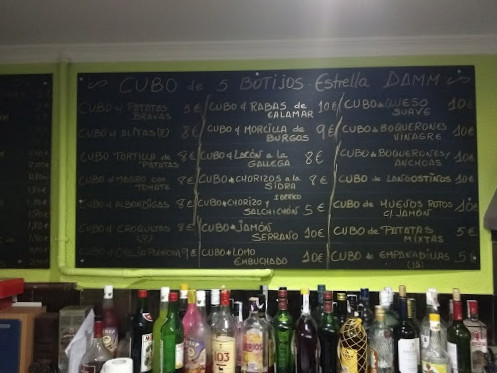 CUBO de 5 BOTIJOS - Estrella DAMM
CUBO d PATATAS BRAVAS 5€
CUBO d ALITAS 8€
CUBO TORTILLA de PATATAS 8€
CUBO d MAGRO con TOMATE 8€
CUBO d ALBONDIGAS 8€
CUBO d CROQUETAS 8€
CUBO d OREJA PLANCHA 9€
CUBO d RABAS de CALAMAR 10€
CUBO d MORCILLA de BURGOS 9€
CUBO d LACÓN a la GALLEGA 8€
CUBO d CHORIZOS a la SIDRA 8€
CUBO d CHORIZO y SALCHICHÓN IBERICO 5€
CUBO d JAMÓN SERRANO 10€
CUBO d LOMO EMBUCHADO 10€
CUBO de QUESO SUAVE 10€
CUBO de BOQUERONES VINAGRE 10€
CUBO de BOQUERONES y ANCHOAS 10€
CUBO de LANGOSTINOS 10€
CUBO de HUEVOS ROTOS C/JAMÓN 10€
CUBO de PATATAS MIXTAS 5€
CUBO de EMPANADILLAS 5€
103